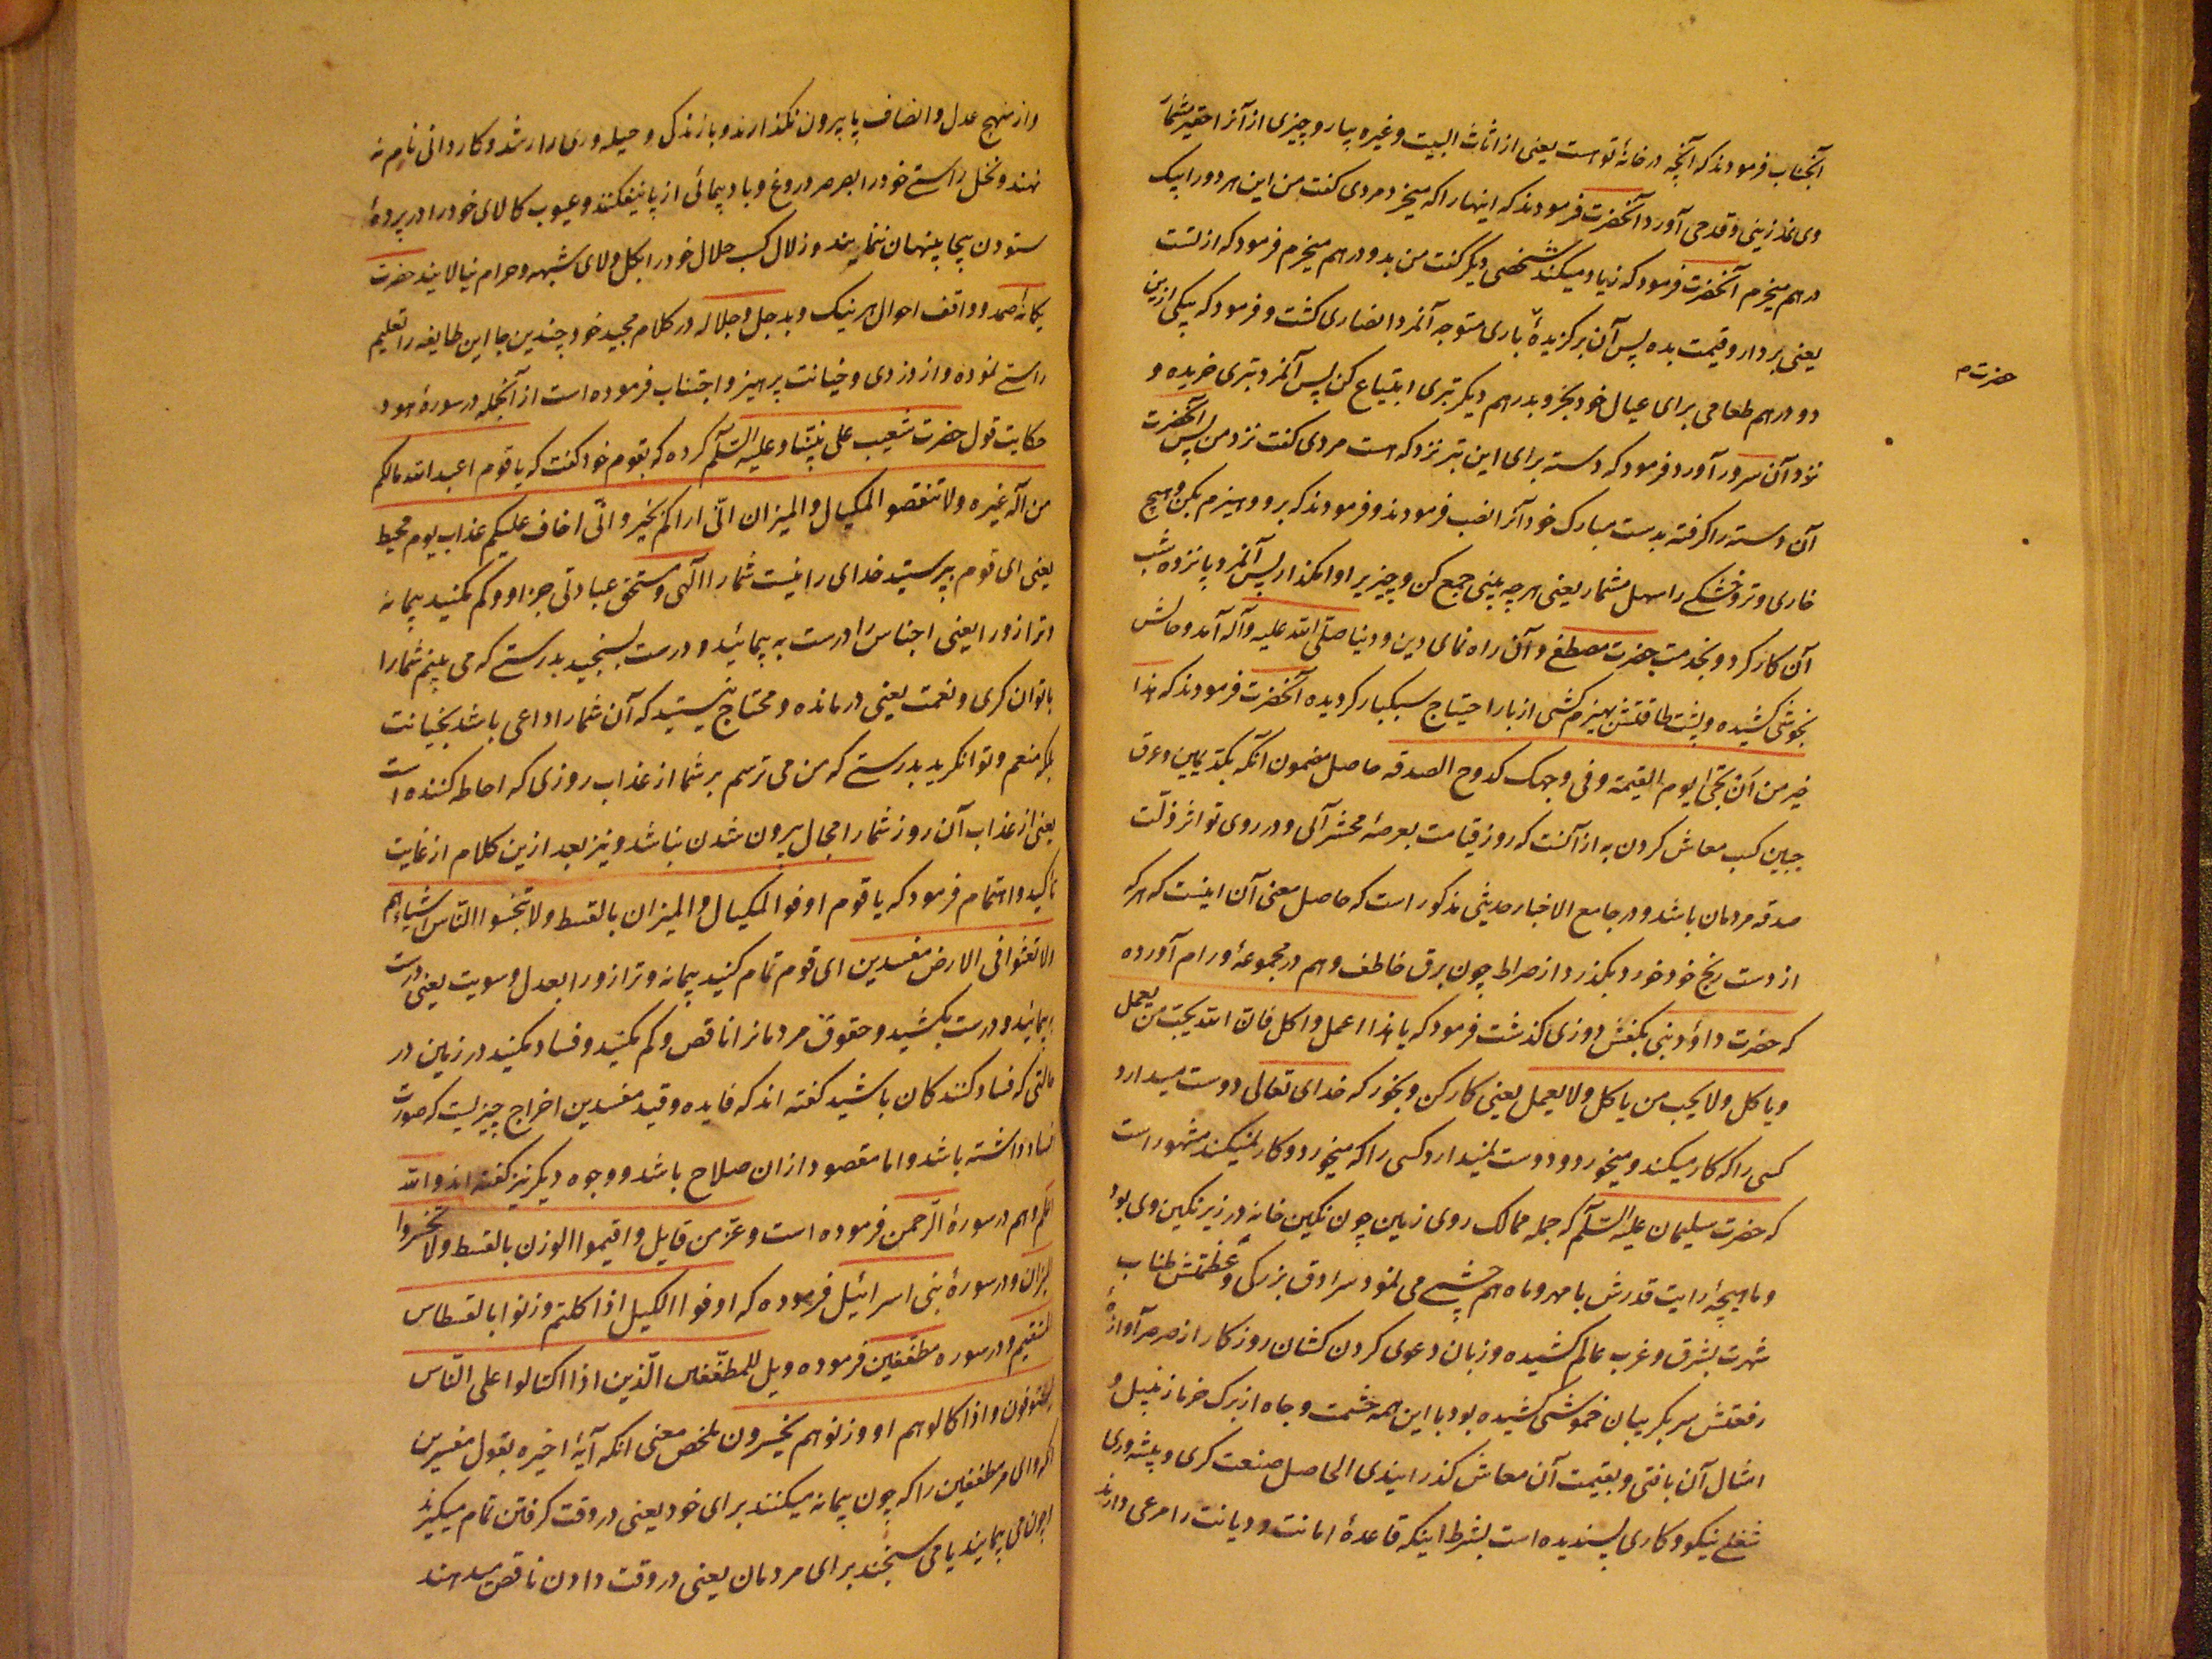 آنجناب فرمودند که آنچه در خانهٔ تو است یعنی از اثاث البیت و غیره بیار و چیزی از آنرا حقیر مشمار
وی نمد زینی و قدحی آورد آنحضرت فرمودند که اینها را که میخرد مردی گفت من این هر دو را بیک
درهم میخرم آنحضرت فرمود که زیاد میکند شخصی دیگر گفت من بدو درهم میخرم فرمود که از تست
یعنی بردار و قیمت بده پس آن برگزیدهٔ باری متوجه آنمرد انصاری گشت و فرمود که بیکی ازین
دو درهم طعامی برای عیال خود بخر و بدرهم دیگر تبری ابتیاع کن پس آنمرد تبری خریده و
نزد آن سرور آورد فرمود که دسته برای این تبر نزد که هست مردی گفت نزد من پس آنحضرت
حضرت م
آن دسته را گرفته بدست مبارک خود آنرا نصب فرمودند و فرمودند که برو و هیزم بکن و هیچ
خاری و تر و خشکے را سهل مشمار یعنی هر چه بینی جمع کن و چیزیرا وامگذار پس آنمرد پانزده شب
آن کار کرد و بخدمت حضرت مصطفی و آن راه نمای دین و دنیا صلّی الله علیه و آله آمد و حالش
بخوشی کشیده و پشت طاقتش بهیزم کشی از بار احتیاج سبکبار گردیده آنحضرت فرمودند که هذا
خیر من ان تجئ یوم القیمة و فی وجهک کدوح الصدقه حاصل مضمون آنکه بکدّ یمین و عرق
جبین کسب معاش کردن به از آنست که روز قیامت بعرصهٔ محشر آئی و در روی تو اثر ذلّت
صدقه مردمان باشد و در جامع الاخبار حدیثی مذکور است که حاصل معنی آن اینست که هر که
از دست رنج خود خورد بگذرد از صراط چون برق خاطف و هم در مجموعهٔ ورام آورده
که حضرت داؤد نبی بکفش دوزی گذشت فرمود که یا هذا اعمل و اکل فان الله یحب من یعمل
و یاکل و لا یحب من یاکل و لا یعمل یعنی کار کن و بخور که خدای تعالی دوست میدارد
کسی را که کار میکند و میخورد و دوست نمیدارد کسی را که میخورد و کار نمیکند مشهور است
که حضرت سلیمان علیه السّلام که جمله ممالک روی زمین چون نگین خانه در زیر نگین وی بود
و ماهیچهٔ رایت قدرش با مهر و ماه هم چشمے می نمود سرادق بزرگی و عظمتش طناب
شهرت بشرق و غرب عالم کشیده و زبان دعوی گردن کشان روزگار از صرصر آوازهٔ
رفعتش سر بگریبان خموشی کشیده بود با این همه حشمت و جاه از برگ خرما زنبیل و
امثال آن بافتی و بقیمت آن معاش گذرانیدی الحاصل صنعت گری و پیشه وری
شغلے نیکو و کاری پسندیده است بشرط اینکه قاعدهٔ امانت و دیانت را مرعی دارند
و از منهج عدل و انصاف پا بیرون نگذارند و بازندگی و حیله وری را رشد و کاردانی نام نه
نهند و نخل راستے خود را بصرصر دروغ و باد پیمائی از پا نیفکنند و عیوب کالای خود را در پردهٔ
ستودن بیجا پنهان ننمایند و زلال کسب حلال خود را بگل و لای شبهه و حرام نیالایند حضرت
یگانهٔ صمد و واقف احوال هر نیک و بد جل و جلاله در کلام مجید خود چندین جا این طایفه را تعلیم
راستے نموده و از دزدی و خیانت پرهیز و اجتناب فرموده است از آنجمله در سورهٔ هود
حکایت قول حضرت شعیب علی نبیّنا و علیه السّلام کرده که بقوم خود گفت که یا قوم اعبدوالله مالکم
من آله غیره و لا تنقصو المکیال و المیزان انّی اراکم بخیر و انّی اخاف علیکم عذاب یوم محیط
یعنی ای قوم بپرستید خدای را نیست شما را الٓهی و مستحق عبادتی جز او و کم مکنید پیمانه
و ترازو را یعنی اجناس را درست به پیمائید و درست بسنجید بدرستے که می بینم شما را
باتوان گری و نعمت یعنی درمانده و محتاج نیستید که آن شما را داعی باشد بخیانت
بلکه منعم و توانگرید بدرستے که من می ترسم بر شما از عذاب روزی که احاطه کننده است
یعنی از عذاب آن روز شما را مجال بیرون شدن نباشد و نیز بعد ازین کلام از غایت
تأکید و اهتمام فرمود که یا قوم اوفوا المکیال و المیزان بالقسط و لا تبخسوا النّاس اشیاءهم
و لا تعثوا فی الارض مفسدین ای قوم تمام کنید پیمانه و ترازو را بعدل و سویت یعنی درست
بپیمائید و درست بکشید و حقوق مردمانرا ناقص و کم مکنید و فساد مکنید در زمین در
حالتی که فساد کنندگان باشید گفته اند که فایده و قید مفسدین اخراج چیزیست که صورت
فساد داشته باشد و اما مقصود ازان صلاح باشد و وجوه دیگر نیز گفته اند و الله
اعلم و هم در سورهٔ الرّحمن فرموده است و عزّ من قایل و اقیموا الوزن بالقسط و لا تخسروا
المیزان و در سورهٔ بنی اسرائیل فرموده که اوفوا الکیل اذا کلتم وزنوا بالقسطاس
المستقیم و در سوره مطفّفین فرموده ویل للمطفّفین الّذین اذا اکتالوا علی النّاس
یستوفون و اذا کالوهم او وزنوهم یخسرون ملخص معنی آنکه آیهٔ اخیره بقول مفسرین
آنکه وای مر مطففین را که چون پیمانه میکنند برای خود یعنی در وقت گرفتن تمام میگیرند
و چون می پیمایند یا می سنجند برای مردمان یعنی در وقت دادن ناقص میدهند